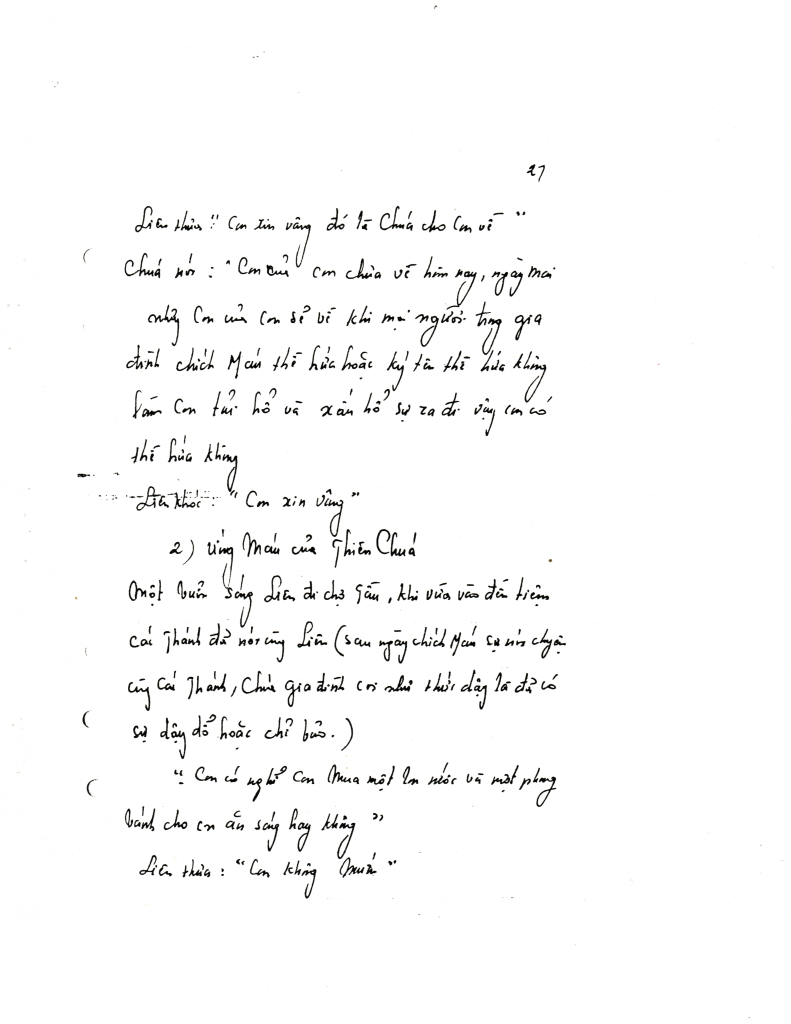 27
Liên thưa " Con xin vâng đó là Chúa cho Con về "
Chúa nói : " Con của con chưa về hôm nay, ngày mai
những Con của Con sẽ về khi mọi người trong gia
đình chích Máu thề hứa hoặc ký tên thề hứa không
làm Con tủi hổ và xấu hổ sự ra đi vậy con có
thề hứa không
Liên khóc : " Con xin vâng "
2) Uống Máu của Thiên Chúa
Một buổi sáng Liên đi chợ gần, khi vừa vào đến tiệm
Các Thánh đã nói cùng Liên (sau ngày chích Máu sự nói chuyện
cùng Các Thánh, Chúa gia đình coi như thức dậy là đã có
sự dậy dổ hoặc chỉ bảo.)
" Con có nghĩ Con mua một lon nước và một phong
bánh cho con ăn sáng hay không "
Liên thưa : " Con không muốn "